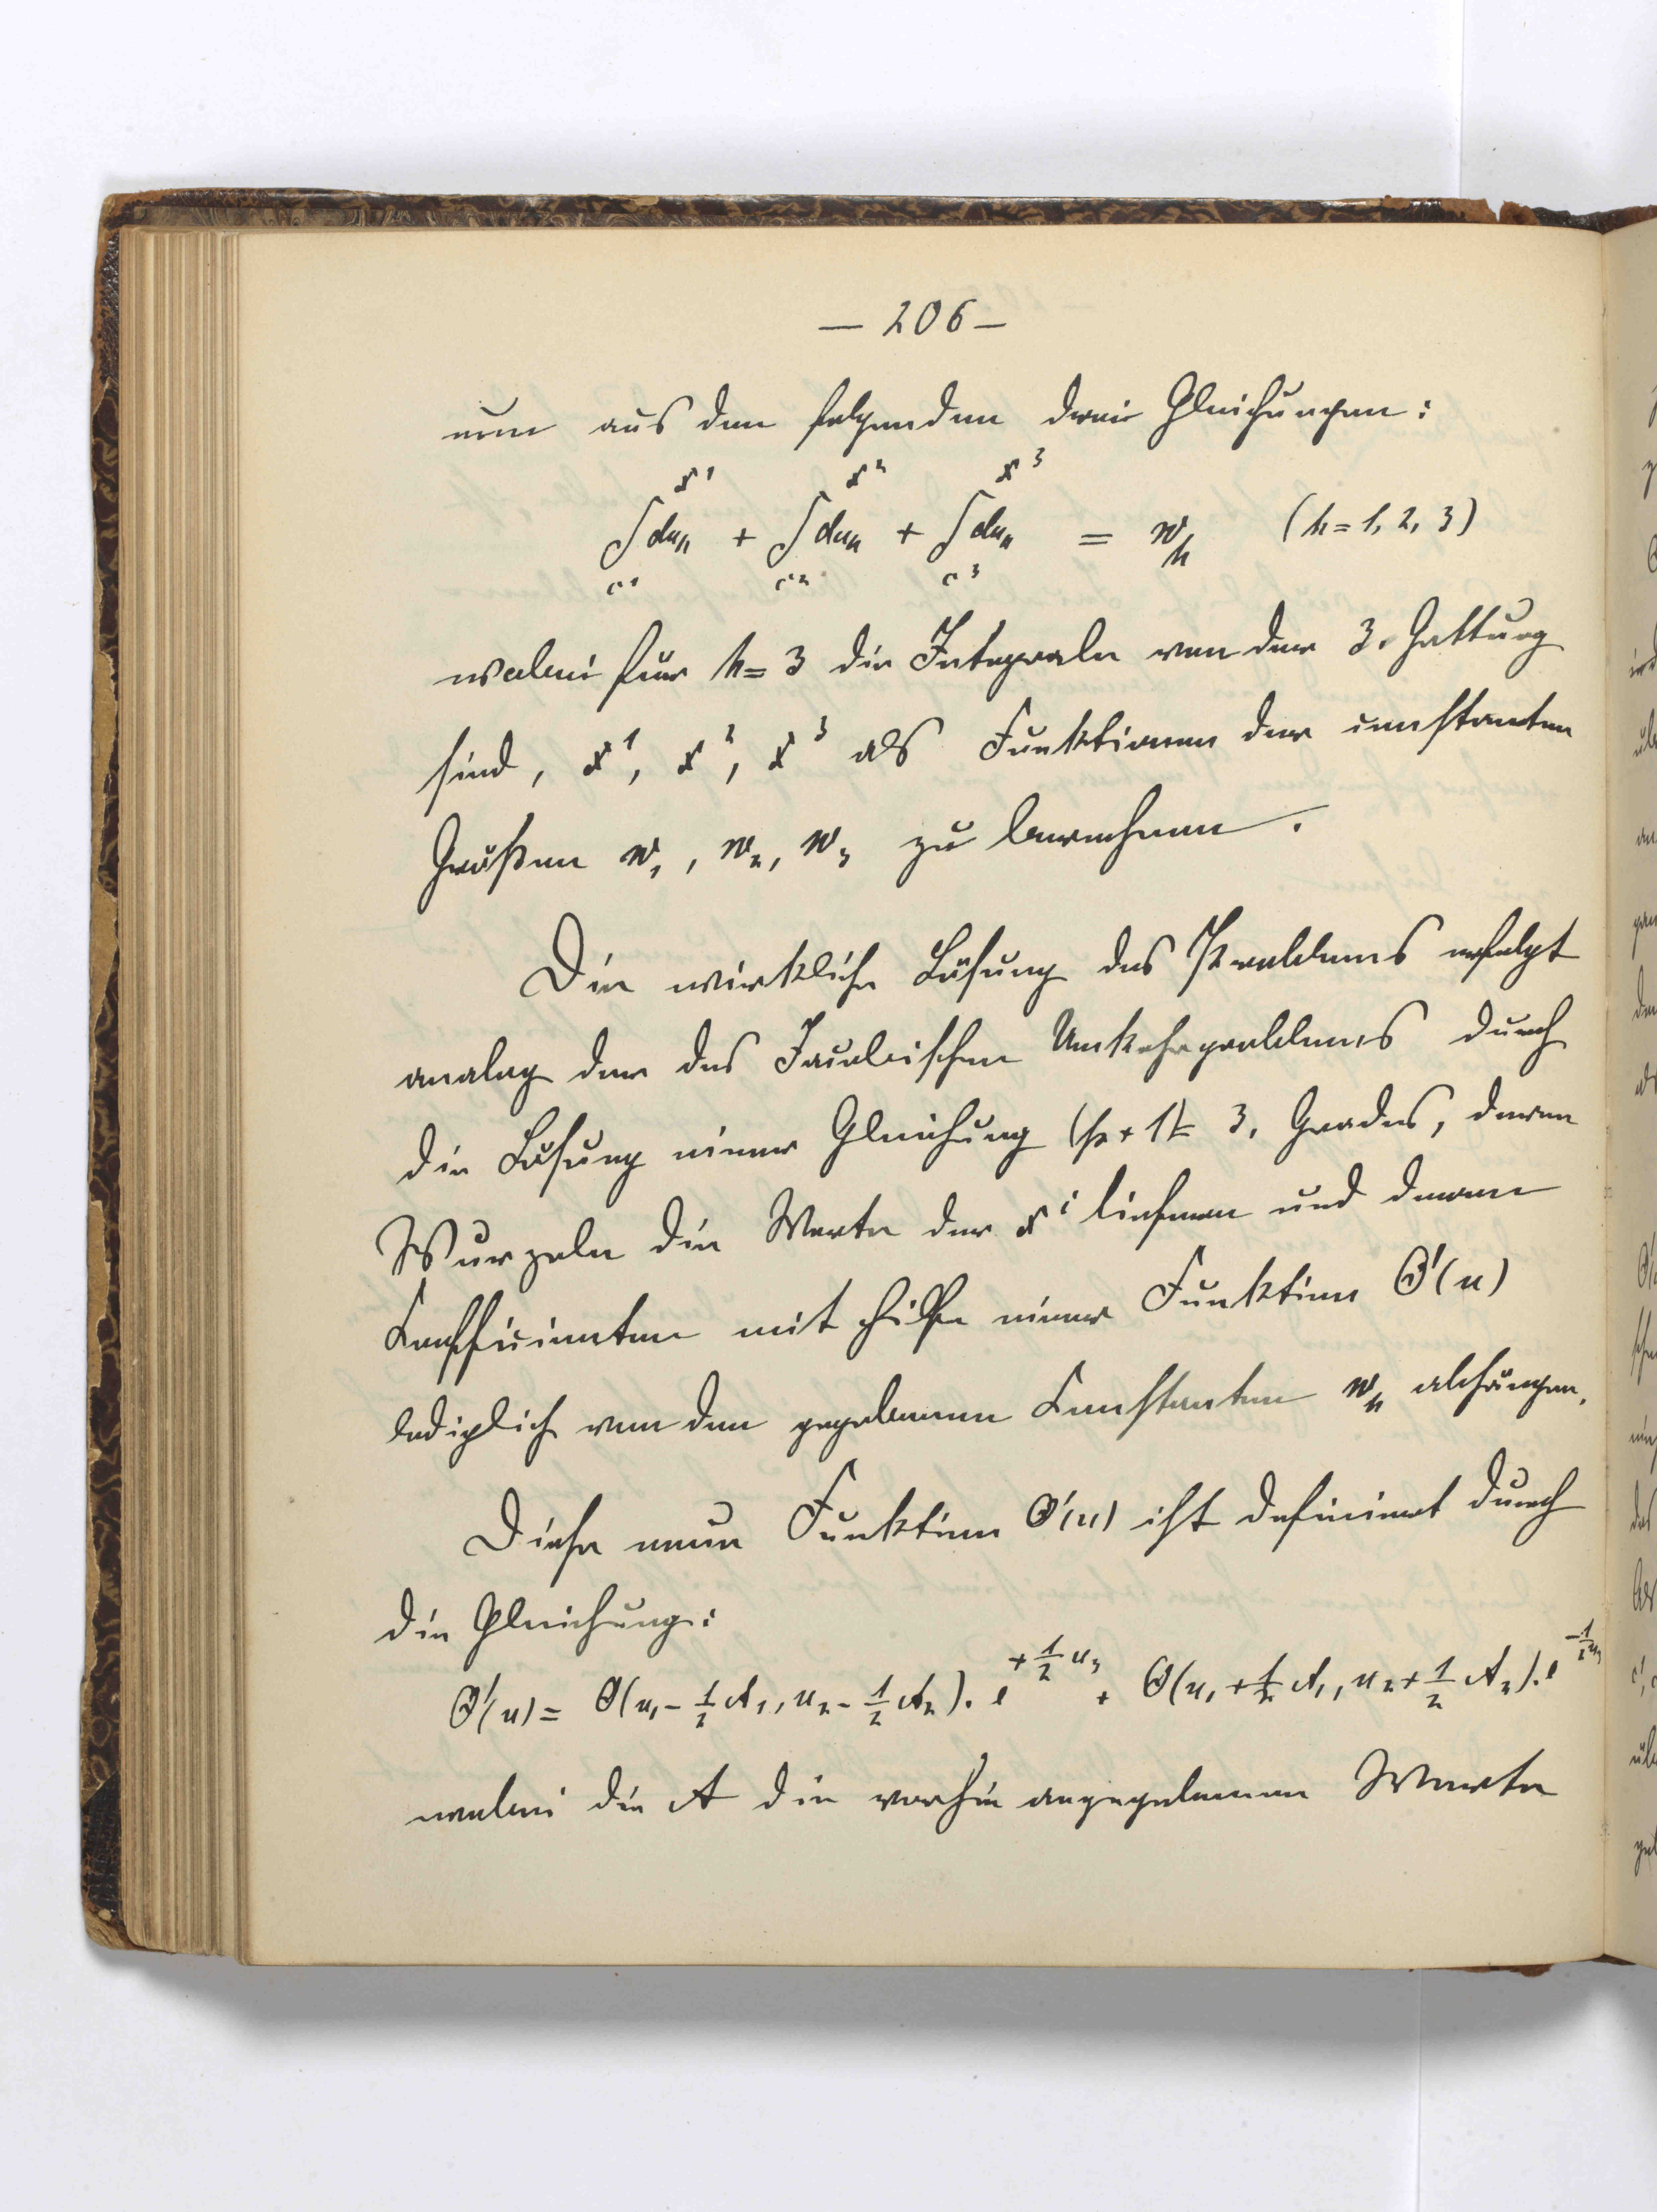 — 206 —
nun aus den folgenden drei Gleichungen:
x¹ x² x³
∫du_h + ∫du_h + ∫du_h = w_h (h = 1, 2, 3)
c¹ c² c³
wobei für h = 3 die Integrale von der 3. Gattung
sind, x¹, x², x³ als Funktionen der constanten
Größen w₁, w₂, w₃ zu berechnen.
Die wirkliche Lösung des Problems erfolgt
analog der des Jacobischen Umkehrproblems durch
die Lösung einer Gleichung (p+1) = 3. Grades, deren
Wurzeln die Werte der xⁱ liefern und deren
Coefficienten mit Hilfe einer Funktion Θ'(u)
lediglich von den gegebenen Constanten w_h abhängen.
Diese neue Funktion Θ'(u) ist definiert durch
die Gleichung:
Θ'(u) = Θ(u₁ - ½ A₁, u₂ - ½ A₂) . e^{+½ u₃} + Θ(u₁ + ½ A₁, u₂ + ½ A₂) . e^{-½ u₃}
wobei die A die vorhin angegebenen Werte